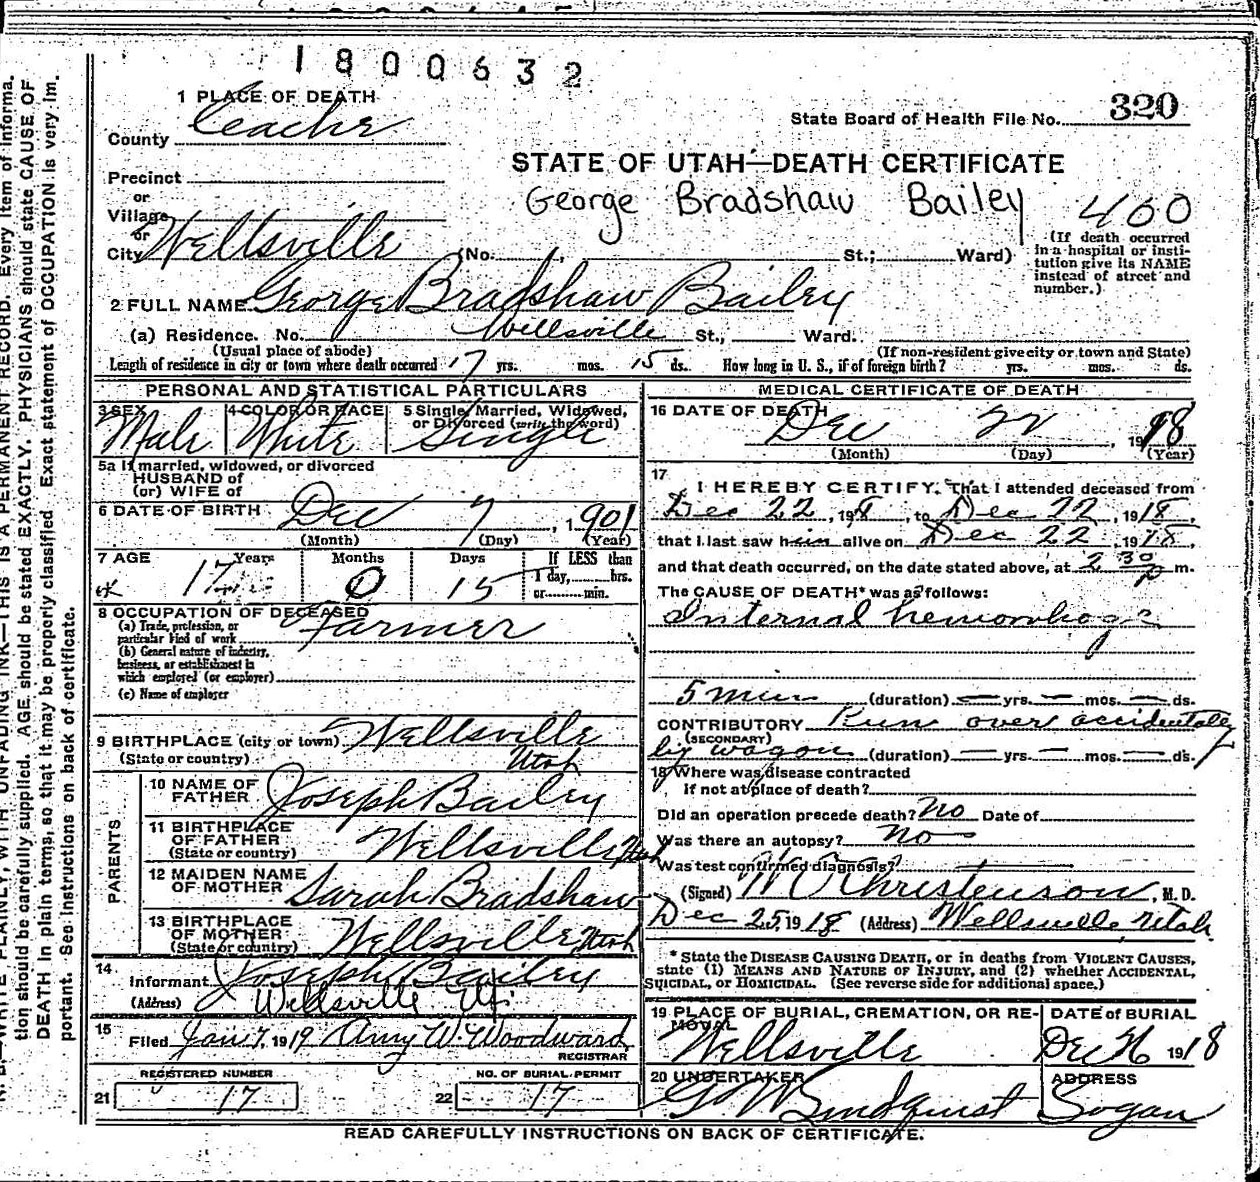 1800632
1 PLACE OF DEATH
County Ceache
State Board of Health File No. 320
STATE OF UTAH—DEATH CERTIFICATE
Precinct
or
Village
or
City Wellsville (No. , St.; Ward)
George Bradshaw Bailey 400
(If death occurred in a hospital or institution give its NAME instead of street and number.)
2 FULL NAME George Bradshaw Bailey
(a) Residence. No. Wellsville St., Ward.
(Usual place of abode) (If non-resident give city or town and State)
Length of residence in city or town where death occurred 17 yrs. mos. 15 ds. How long in U. S., if of foreign birth? yrs. mos. ds.
PERSONAL AND STATISTICAL PARTICULARS
3 SEX Male
4 COLOR OR RACE White
5 Single, Married, Widowed, or Divorced (write the word) Single
5a If married, widowed, or divorced
HUSBAND of
(or) WIFE of
6 DATE OF BIRTH Dec 7, 1901
(Month) (Day) (Year)
7 AGE Years Months Days If LESS than
17 0 15 1 day, hrs.
or min.
8 OCCUPATION OF DECEASED
(a) Trade, profession, or particular kind of work Farmer
(b) General nature of industry, business, or establishment in which employed (or employer)
(c) Name of employer
9 BIRTHPLACE (city or town) Wellsville
(State or country) Utah
PARENTS
10 NAME OF FATHER Joseph Bailey
11 BIRTHPLACE OF FATHER (State or country) Wellsville Utah
12 MAIDEN NAME OF MOTHER Sarah Bradshaw
13 BIRTHPLACE OF MOTHER (State or country) Wellsville, Utah
14 Informant Joseph Bailey
(Address) Wellsville
15 Filed Jan 7, 1919 Amy W. Woodward
REGISTRAR
REGISTERED NUMBER NO. OF BURIAL PERMIT
21 17 22 17
MEDICAL CERTIFICATE OF DEATH
16 DATE OF DEATH
Dec 22, 1918
(Month) (Day) (Year)
17
I HEREBY CERTIFY, That I attended deceased from
Dec 22, 1918, to Dec 22, 1918,
that I last saw him alive on Dec 22, 1918,
and that death occurred, on the date stated above, at 2 30 p m.
The CAUSE OF DEATH* was as follows:
Internal hemorrhage
5 min (duration) — yrs. — mos. — ds.
CONTRIBUTORY Run over accidentaly
(SECONDARY)
by wagon (duration) — yrs. — mos. — ds.
18 Where was disease contracted
if not at place of death?
Did an operation precede death? No Date of
Was there an autopsy? no
Was test confirmed diagnosis?
(Signed) W O Christenson, M. D.
Dec 25, 1918 (Address) Wellsville, Utah
* State the DISEASE CAUSING DEATH, or in deaths from VIOLENT CAUSES,
state (1) MEANS AND NATURE OF INJURY, and (2) whether ACCIDENTAL,
SUICIDAL, or HOMICIDAL. (See reverse side for additional space.)
19 PLACE OF BURIAL, CREMATION, OR REMOVAL DATE of BURIAL
Wellsville Dec 26 1918
20 UNDERTAKER ADDRESS
G W Lindquist Logan
READ CAREFULLY INSTRUCTIONS ON BACK OF CERTIFICATE.
N. B.—WRITE PLAINLY, WITH UNFADING INK—THIS IS A PERMANENT RECORD. Every item of informa-
tion should be carefully supplied. AGE should be stated EXACTLY. PHYSICIANS should state CAUSE OF
DEATH in plain terms, so that it may be properly classified. Exact statement of OCCUPATION is very im-
portant. See instructions on back of certificate.